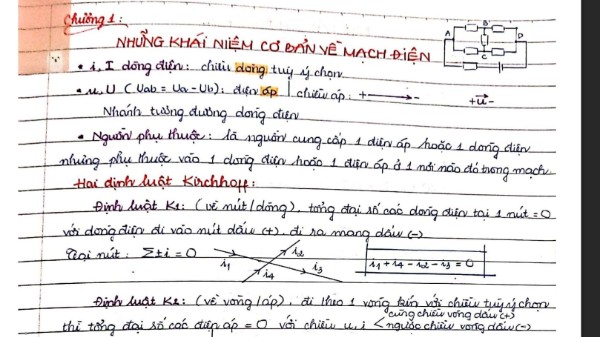 Chương 1:
NHỮNG KHÁI NIỆM CƠ BẢN VỀ MẠCH ĐIỆN
A B C D
• i, I dòng điện: chiều dòng tuỳ ý chọn
• u, U (Uab = Ua - Ub): điện áp | chiều áp: + → - +u-
Nhánh tương đương dòng điện
• Nguồn phụ thuộc: là nguồn cung cấp 1 điện áp hoặc 1 dòng điện
nhưng phụ thuộc vào 1 dòng điện hoặc 1 điện áp ở 1 nơi nào đó trong mạch.
Hai định luật Kirchhoff:
Định luật K1: (về nút/dòng), tổng đại số các dòng điện tại 1 nút = 0
với dòng điện đi vào nút dấu (+), đi ra mang dấu (-)
Tại nút: Σ±i = 0 i1 i2 i3 i4 i1 + i4 - i2 - i3 = 0
Định luật K2: (về vòng/áp), đi theo 1 vòng kín với chiều tuỳ ý chọn
thì tổng đại số các điện áp = 0 với chiều u, i < cùng chiều vòng dấu (+)
ngược chiều vòng dấu (-)